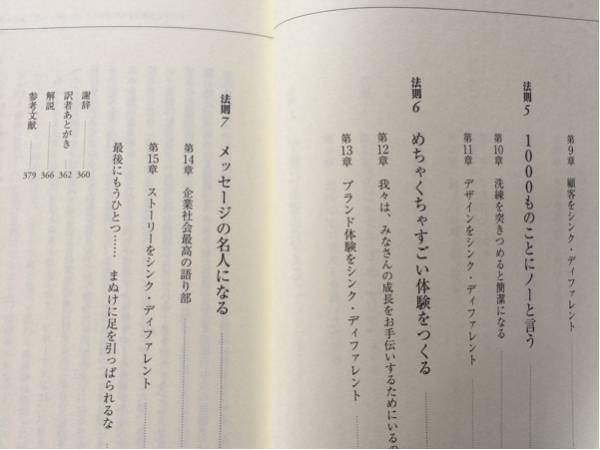 第9章 顧客をシンク・ディファレント
法則5 1000ものことにノーと言う
第10章 洗練を突きつめると簡潔になる
第11章 デザインをシンク・ディファレント
法則6 めちゃくちゃすごい体験をつくる
第12章 我々は、みなさんの成長をお手伝いするためにいるの
第13章 ブランド体験をシンク・ディファレント
法則7 メッセージの名人になる
第14章 企業社会最高の語り部
第15章 ストーリーをシンク・ディファレント
最後にもうひとつ…… まぬけに足を引っぱられるな
謝辞 360
訳者あとがき 362
解説 366
参考文献 379